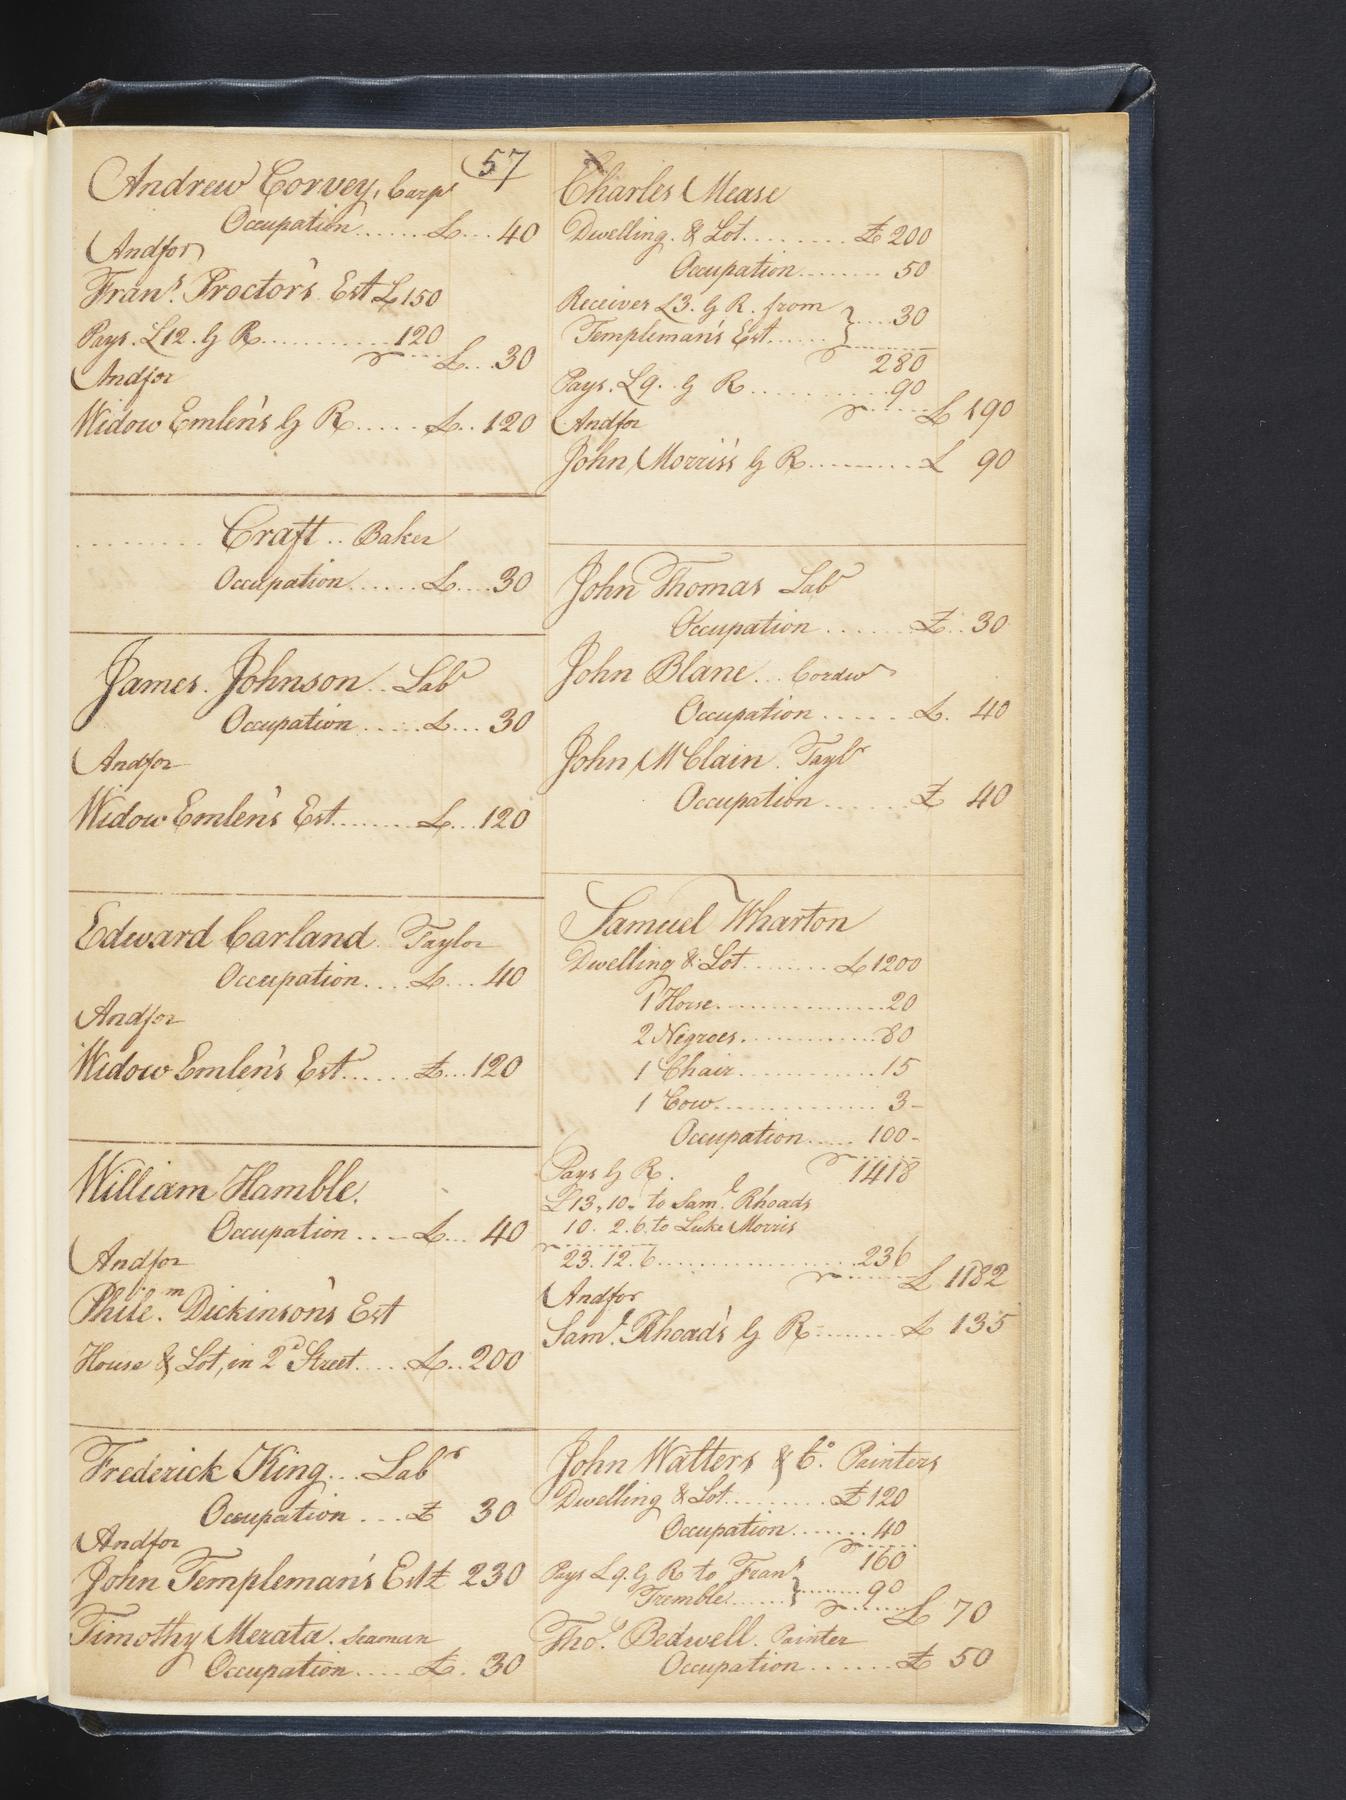 57
Andrew Corvey, Carpr
Occupation......£...40
And for
Frans. Proctor's Est £150
Pays. £12. G R............120
£...30
And for
Widow Emlen's G R.....£..120
......... Craft .. Baker
Occupation......£....30
James. Johnson.. Labr
Occupation.....£...30
And for
Widow Emlen's Est........£...120
Edward Carland Taylor
Occupation....£...40
And for
Widow Emlen's Est......£...120
William Hamble.
Occupation....£...40
And for
Phile.m Dickinson's Est
House & Lot, in 2d Street.....£..200
Frederick King... Labr
Occupation...£ 30
And for
John Templeman's Est £ 230
Timothy Merata. Seaman
Occupation.....£. 30
Charles Mease
Dwelling. & Lot.........£200
Occupation........50
Receives £3. G R. from } ....30
Templeman's Est......
280
Pays. £9. G R...........90
£190
And for
John Morris's G R.........£ 90
John Thomas Labr
Occupation.......£..30
John Blane... Cordwr
Occupation......£. 40
John McClain. Taylr
Occupation.......£ 40
Samuel Wharton
Dwelling & Lot........£1200
1 Horse..............20
2 Negroes............80
1 Chair............15
1 Cow..............3-
Occupation.....100-
Pays G R. 1418
£13.,10.. to Saml. Rhoads
10. 2.6. to Luke Morris
23.12.6..................236
£1182
And for
Saml. Rhoad's G R........£ 135
John Watters & Co. Painters
Dwelling & Lot.........£120
Occupation.......40
160
Pays £9. G R to Frans } ........90
Tremble......
£ 70
Thos. Bedwell. Painter
Occupation.......£ 50